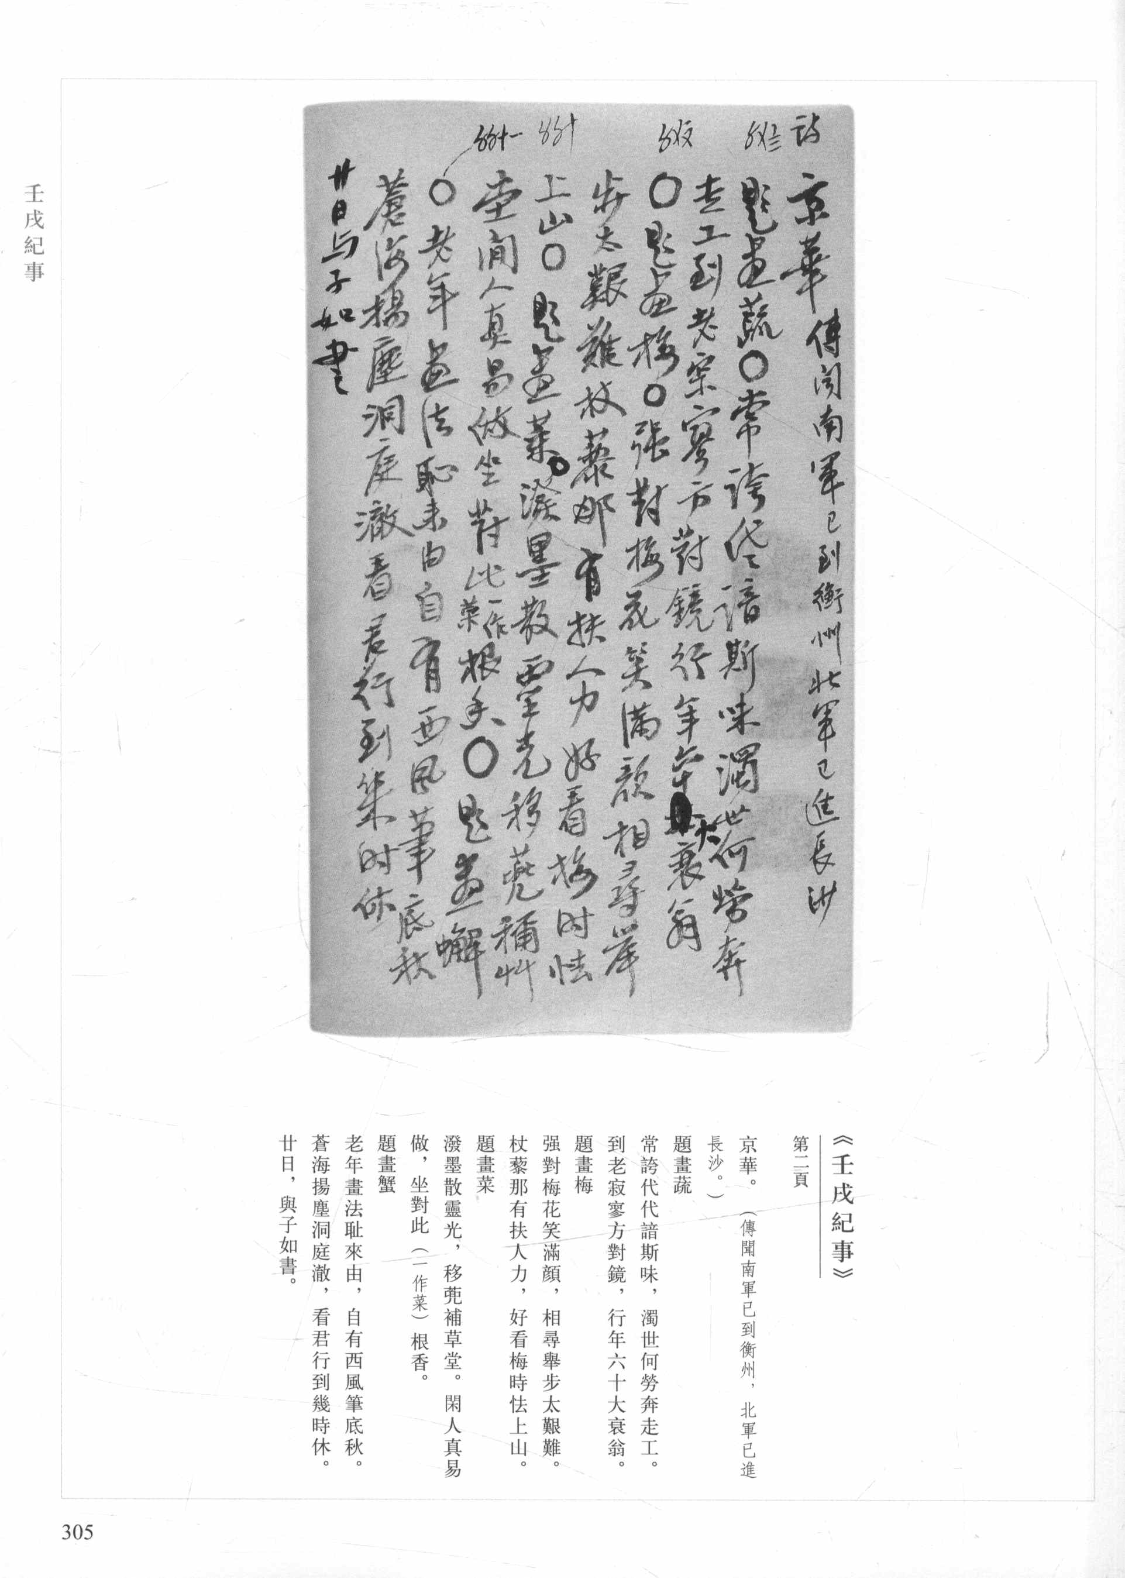 壬戌紀事
詩
京華傳聞南軍已到衡州北軍已進長沙
題畫蔬〇常誇代代諳斯味濁世何勞奔
走工到老寂寥方對鏡行年六十大衰翁
〇題畫梅〇張對梅花笑滿顏相尋舉
步太艱難杖藜那有扶人力好看梅時怯
上山〇題畫菜〇潑墨散靈光移蓖補草
堂閒人真易做坐對此一作菜根香〇題畫蟹
〇老年畫法恥來由自有西風筆底秋
蒼海揚塵洞庭澈看君行到幾時休
廿日与子如書
《壬戌紀事》
第二頁
京華。(傳聞南軍已到衡州，北軍已進
長沙。)
題畫蔬
常誇代代諳斯味，濁世何勞奔走工。
到老寂寥方對鏡，行年六十大衰翁。
題畫梅
强對梅花笑滿顔，相尋舉步太艱難。
杖藜那有扶人力，好看梅時怯上山。
題畫菜
潑墨散靈光，移蓖補草堂。閑人真易
做，坐對此(一作菜)根香。
題畫蟹
老年畫法耻來由，自有西風筆底秋。
蒼海揚塵洞庭澈，看君行到幾時休。
廿日，與子如書。
305